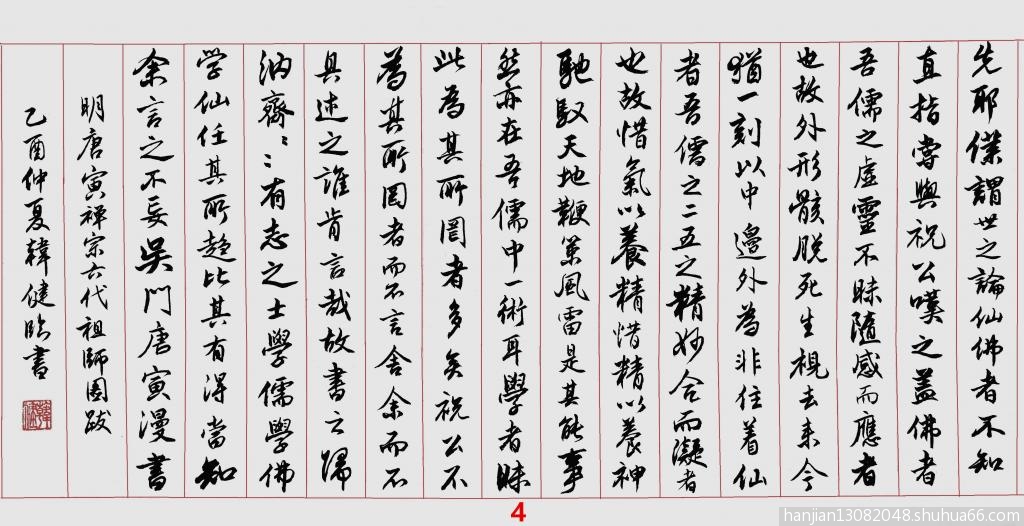 先耶僕謂世之論仙佛者不知
直指嘗與祝公嘆之盖佛者
吾儒之虛靈不昧隨感而應者
也故外形骸脱死生視去来今
猶一刻以中邊外為非住着仙
者吾儒之二五之精妙合而凝者
也故惜氣以養精惜精以養神
馳馭天地鞭策風雷是其能事
然亦在吾儒中一術耳學者昧
此為其所罔者多矣祝公不
為其所罔者而不言舍余而不
具述之誰肯言哉故書云歸
洒齋〻〻有志之士學儒學佛
学仙任其所趋比其有得當知
余言之不妄吴門唐寅漫書
明唐寅禅宗六代祖師图跋
乙酉仲夏韓健临書
4
hanjian13082048.shuhua66.com